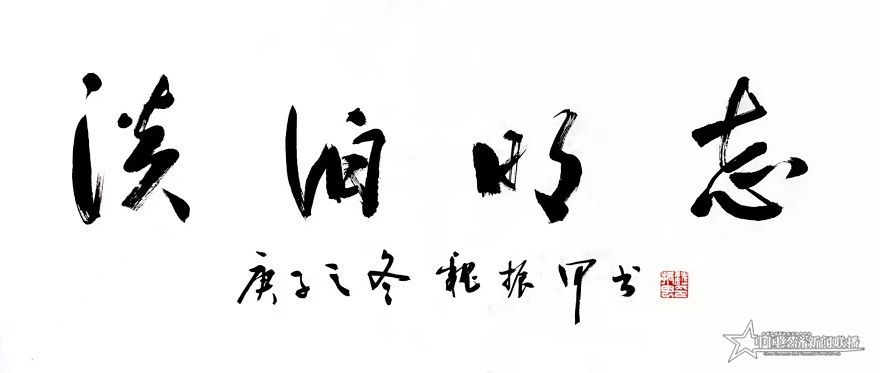 淡泊明志
庚子之冬 魏振甲书
中国经济新闻联播